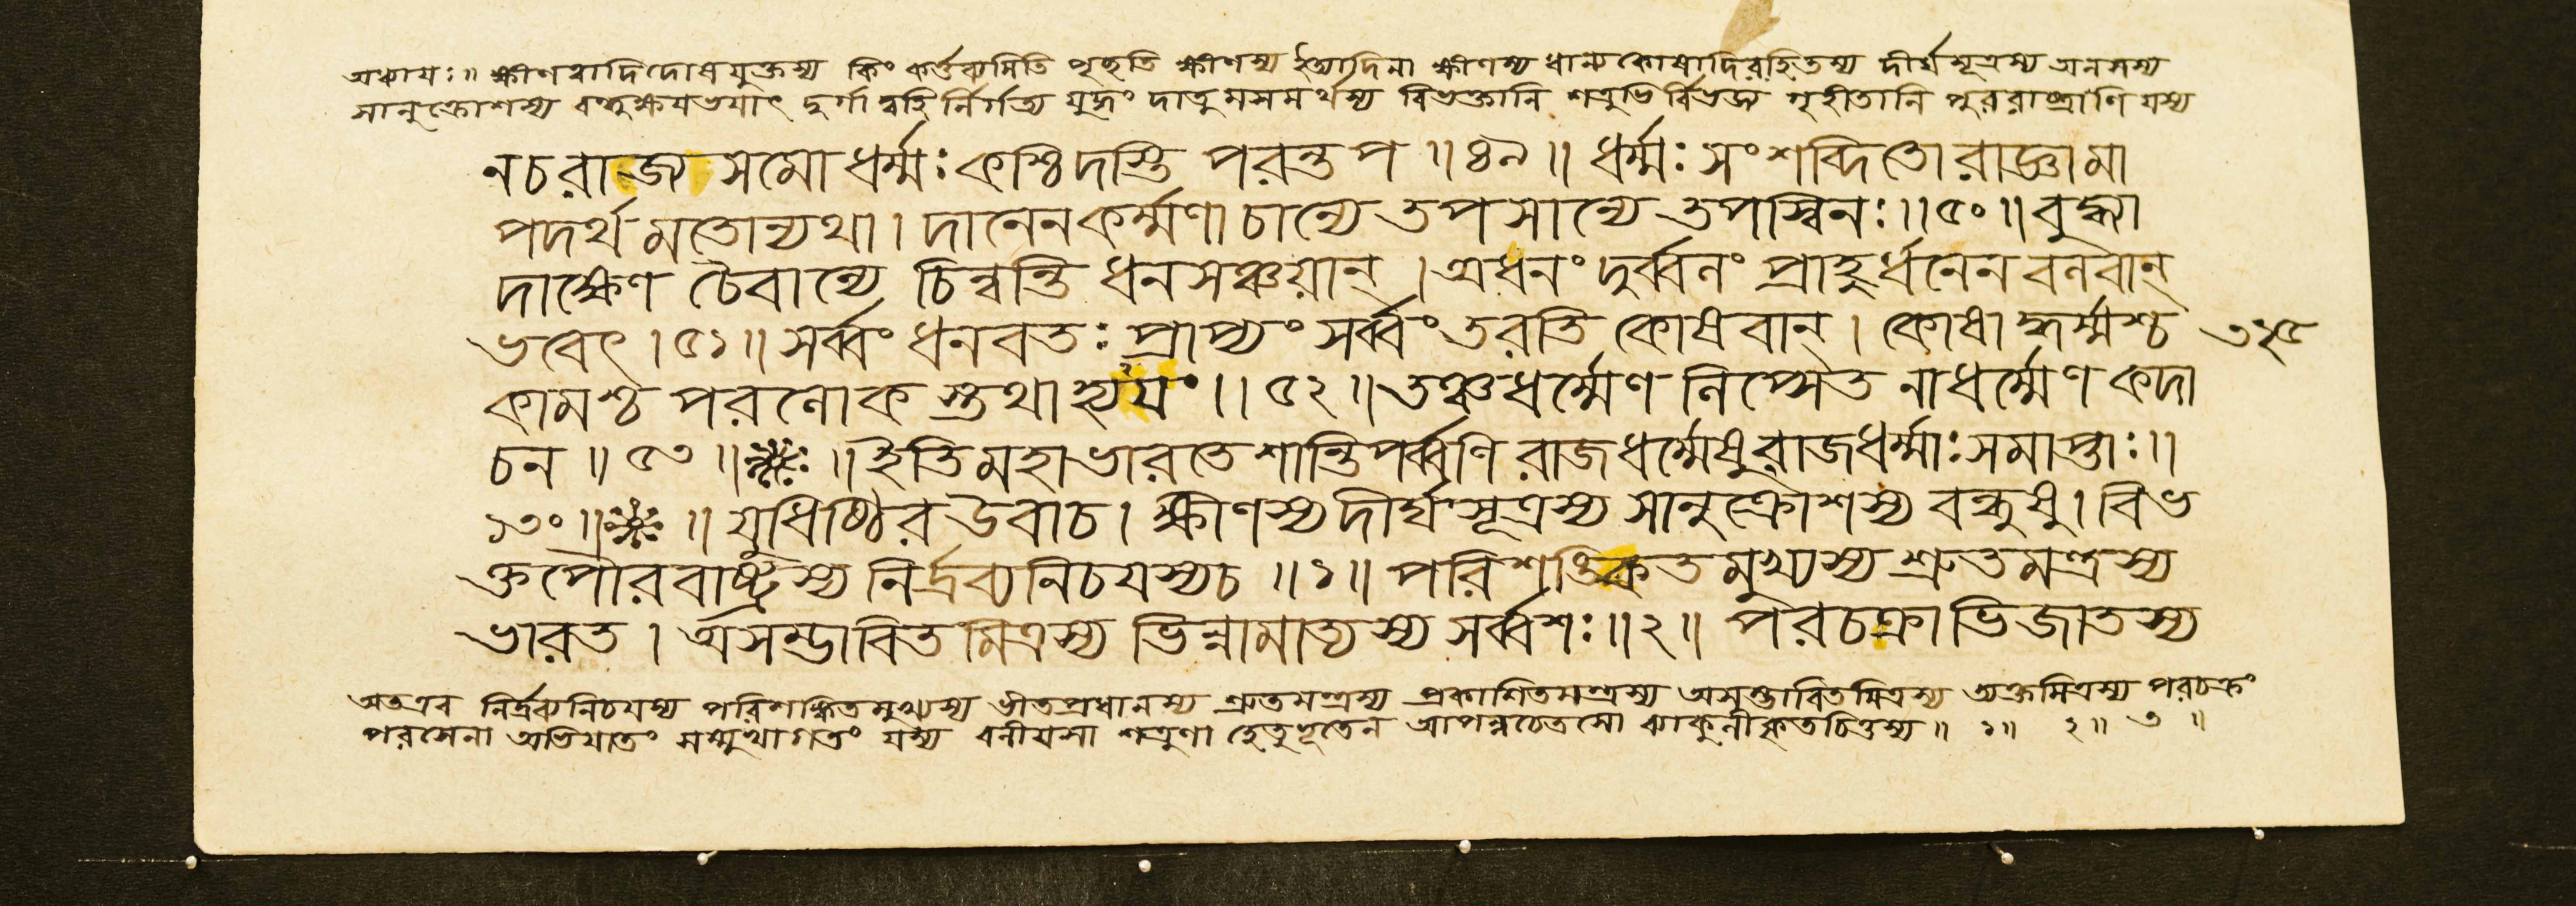 অধ্যায়ঃ॥ ক্ষীণত্বাদিদোষযুক্তস্য কিং কর্ত্তব্যমিতি পৃচ্ছতি ক্ষীণস্য ইত্যাদিনা ক্ষীণস্য ধান্যকোষাদিরহিতস্য দীর্ঘসূত্রস্য অনসস্য
সানুক্রোশস্য বন্ধুক্ষয়ভয়াৎ দুর্গাদ্বহির্নির্গত্য যুদ্ধং দাতুমসমর্থস্য বিভক্তানি শত্রুভির্বিভজ্য গৃহীতানি পুররাষ্ট্রাণি যস্য
ন চ রাজ্য সমো ধর্ম্মঃ কশ্চিদস্তি পরন্তপ ॥ ৪৯ ॥ ধর্ম্মঃ সংশব্দিতো রাজ্ঞামা
পদর্থমতোন্যথা । দানেন কর্ম্মণা চান্যে তপসান্যে তপস্বিনঃ ॥ ৫০ ॥ বুদ্ধ্যা
দাক্ষ্যেণ চৈবান্যে চিন্বন্তি ধনসঞ্চয়ান্ । অধনং দুর্ব্বলং প্রাহুর্ধনেন বলবান্
ভবেৎ । ৫১ ॥ সর্ব্বং ধনবতঃ প্রাপ্যং সর্ব্বং তরতি কোষবান্ । কোষাদ্ধর্ম্মশ্চ ৩২৫
কামশ্চ পরলোকস্তথাহ্যয়ং ॥ ৫২ ॥ তঞ্চ ধর্ম্মেণ লিপ্সেত নাধর্ম্মেণ কদা
চন ॥ ৫৩ ॥ ॥ ইতি মহাভারতে শান্তিপর্ব্বণি রাজধর্ম্মেষু রাজধর্ম্মাঃ সমাপ্তাঃ ॥
১৩০ ॥ ॥ যুধিষ্ঠির উবাচ । ক্ষীণস্য দীর্ঘসূত্রস্য সানুক্রোশস্য বন্ধুষু । বিভ
ক্তপৌররাষ্ট্রস্য নির্দ্রব্যনিচয়স্য চ ॥ ১ ॥ পরিশঙ্কিতমুখ্যস্য শ্রুতমন্ত্রস্য
ভারত । অসম্ভাবিতমিত্রস্য ভিন্নামাত্যস্য সর্ব্বশঃ ॥ ২ ॥ পরচক্রাভিজাতস্য
অতএব নির্দ্রব্যনিচয়স্য পরিশঙ্কিতমুখ্যস্য ভীতপ্রধানস্য শ্রুতমন্ত্রস্য প্রকাশিতমন্ত্রস্য অসম্ভাবিতমিত্রস্য ত্যক্তমিত্রস্য পরচক্রং
পরসেনা অভিযাতং সম্মুখাগতং যস্য বলীয়সা শত্রুণা হেতুভূতেন আপন্নচেতসো ব্যাকুলীকৃতচিত্তস্য ॥ ১॥ ২॥ ৩ ॥